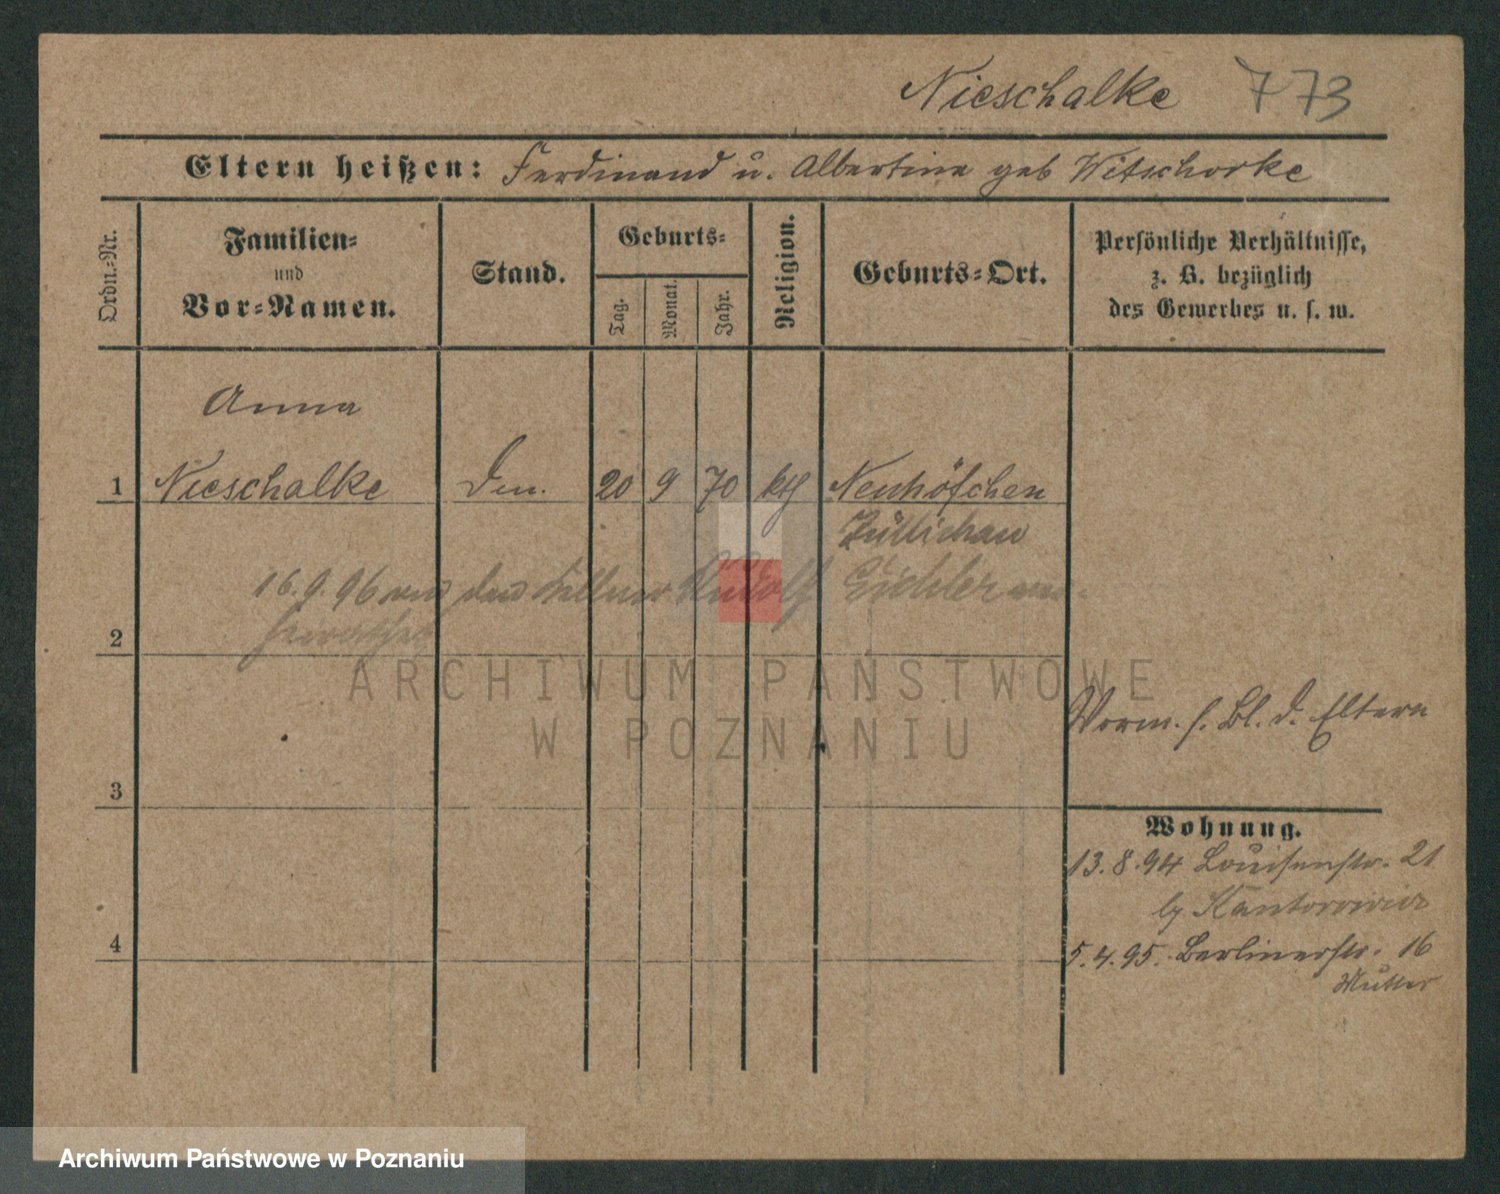 Nieschalke 773
Eltern heißen: Ferdinand u. Albertine geb Witschorke
Ordn.-Nr.
Familien-
und
Vor-Namen.
Stand.
Geburts-
Tag.
Monat.
Jahr.
Religion.
Geburts-Ort.
Persönliche Verhältnisse,
z. B. bezüglich
des Gewerbes u. s. w.
Anna
1 Nieschalke Den. 20 9 70 kth Neuhöfchen
Züllichau
16.9.96 mit dem Kellner Rudolf Eichler ver-
heirathet
2
ARCHIWUM PAŃSTWOWE
W POZNANIU
Vorm. s. Bl. d. Eltern
3
Wohnung.
13.8.94 Louisenstr. 21
by Kantorowicz
4
5.4.95. Berlinerstr. 16
Mutter
Archiwum Państwowe w Poznaniu